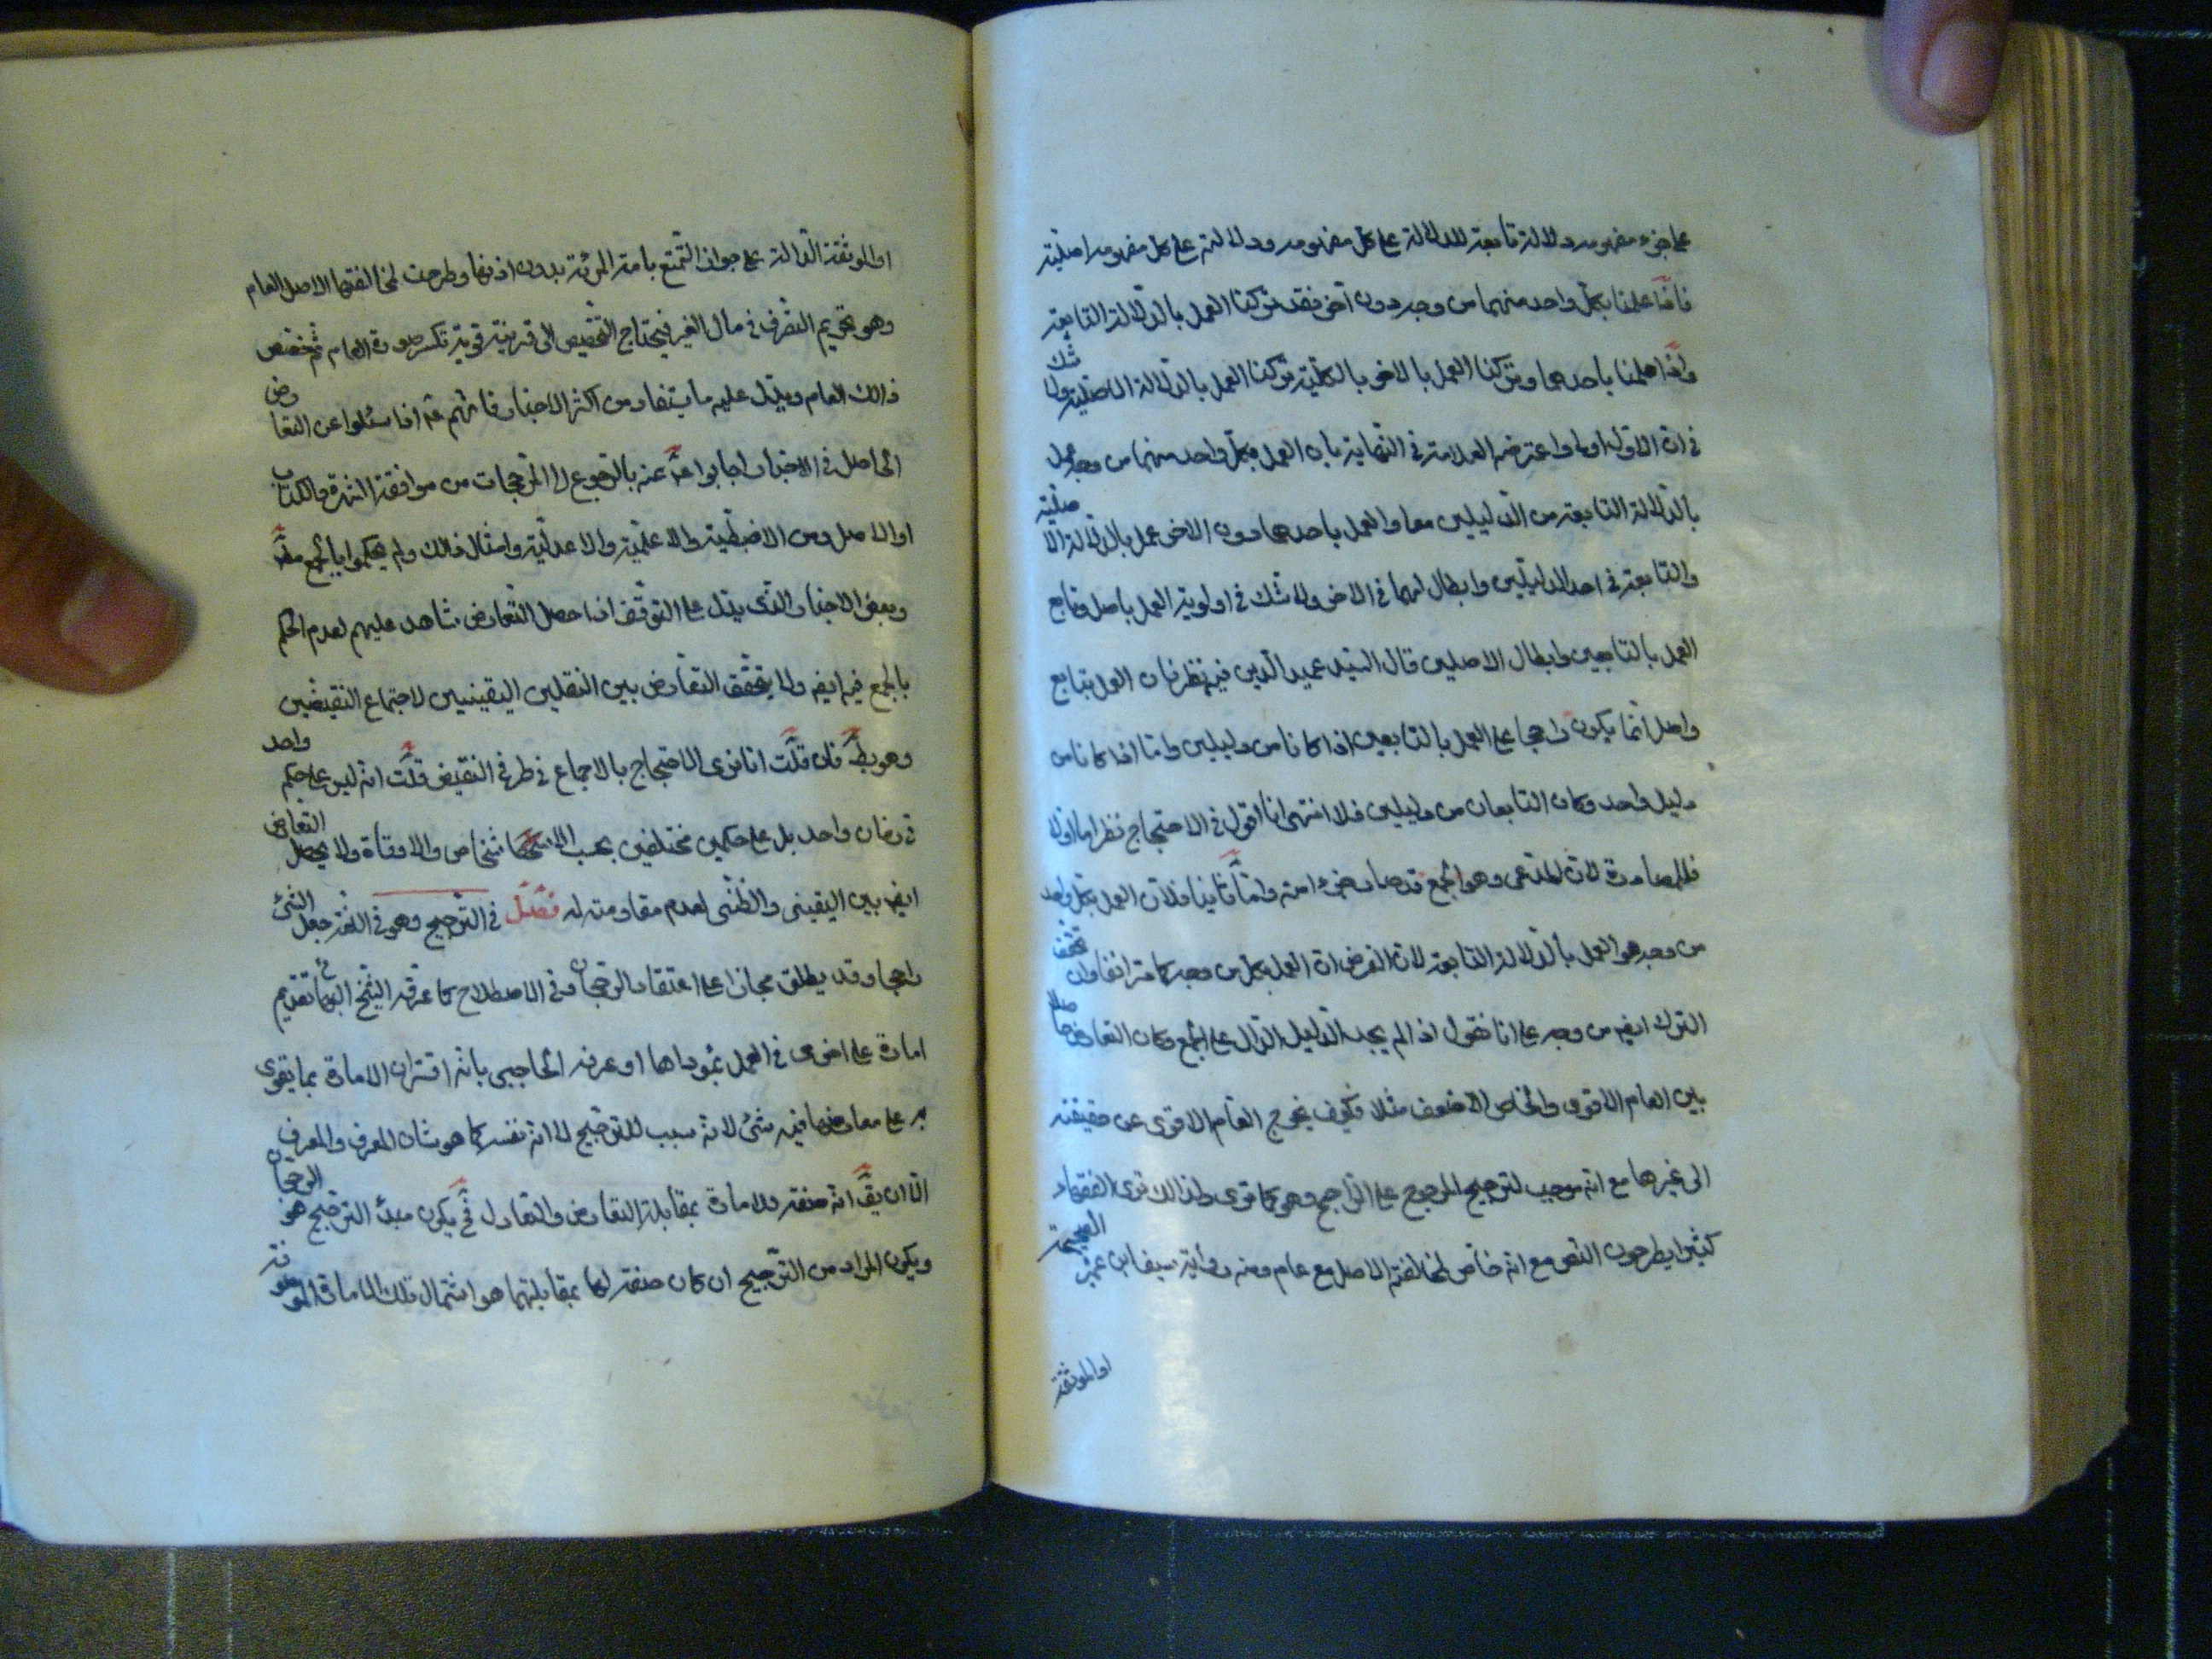 على جزء مفهومه ودلالة تابعة للدلالة على كل مفهومه ودلالته على كل مفهومه اصلية
فاذا عملنا بكل واحد منهما من وجه دون آخر فقد تركنا العمل بالدلالة التابعة
واذا عملنا باحدهما وتركنا العمل بالاخر بالكلية تركنا العمل بالدلالة الاصلية ولا شك
في ان الاول اولى واعترضه العلامة في النهاية بان العمل بكل واحد منهما من وجه عمل
بالدلالة التابعة من الدليلين معا والعمل باحدهما دون الاخر عمل بالدلالة الاصلية
والتابعة في احد الدليلين وابطال لهما في الاخر ولا شك في اولوية العمل باصل وتابع
العمل بالتابعين وابطال الاصلين قال السيد عميد الدين فيه نظر فان العمل بتابع
واصل انما يكون راجحا على العمل بالتابعين اذا كانا من دليلين واما اذا كانا من
دليل واحد وكان التابعان من دليلين فلا انتهى انا اقول في الاحتجاج نظر اما اولا
فللمصادرة لان المدعى وهو الجمع قد صار جزء امنه واما ثانيا فلان العمل بكل واحد
من وجه هو العمل بالدلالة التابعة لان الفرض ان العمل بكل من وجه كما مر انفا وان تحقق
الترك ايضه من وجه على انا نقول اذا لم يجب الدليل الدال على الجمع وكان التعارض حاصلا
بين العام الاقوى والخاص الاضعف مثلا فكيف يخرج العام الاقوى عن حقيقته
الى غيرها مع انه موجب لترجيح المرجوح على الراجح وهو كما ترى ولذالك ترى الفقهاء
كثيرا يطرحون النص مع انه خاص لمخالفته الاصل مع عام ومنه رواية سيف ابن عميرة الصحيحة
او الموثقة
او الموثقة الدالة على جواز التمتع بامة المرئة بدون اذنها وطرحت لمخالفتها الاصل العام
وهو تحريم التصرف في مال الغير فيحتاج التخصيص الى قرينة قوية تكسر صورة العام ثم تخصص
ذالك العام ويدل عليه ما يستفاد من اكثر الاخبار فانهم عم اذا سئلوا عن التعارض
الحاصل في الاخبار اجابوا عم عنه بالرجوع الى المرجحات من موافقة الشهرة والكتاب
او الاصل ومن الاضبطية والاعلمية والاعدلية وامثال ذالك ولم يحكموا بالجمع مط
وبعض الاخبار الذي يدل على التوقف اذا حصل التعارض شاهد عليهم لعدم الحكم
بالجمع فيه ايضه ولا يتحقق التعارض بين النقلين اليقينيين لاجتماع النقيضين
وهو بط فان قلت انا نرى الاحتجاج بالاجماع في طرفي النقيض قلت انه ليس على حكم واحد
في زمان واحد بل على حكمين مختلفين بحسب الاشخاص والاوقات ولا يحصل التعارض
ايضه بين اليقيني والظني لعدم مقاومته له فصل في الترجيح وهو في اللغة جعل الشئ
راجحا وقد يطلق مجازا على اعتقاد الرجحان وفي الاصطلاح كما عرفه الشيخ البهائي تقديم
امارة على اخرى في العمل بمؤداها او عرفه الحاجبي بانه اقتران الامارة بما يقوى
به على معارضها فيه شئ لانه سبب للترجيح لا انه نفسه كما هو شان المعرف والمعرف
الا ان يق انه صفة للامارة بمقابلة التعارض والتعادل فح يكون مبدأ الترجيح هو الرجحان
ويكون المراد من الترجيح ان كان صفة لها بمقابلتهما هو اشتمال تلك الامارة الموصوفة